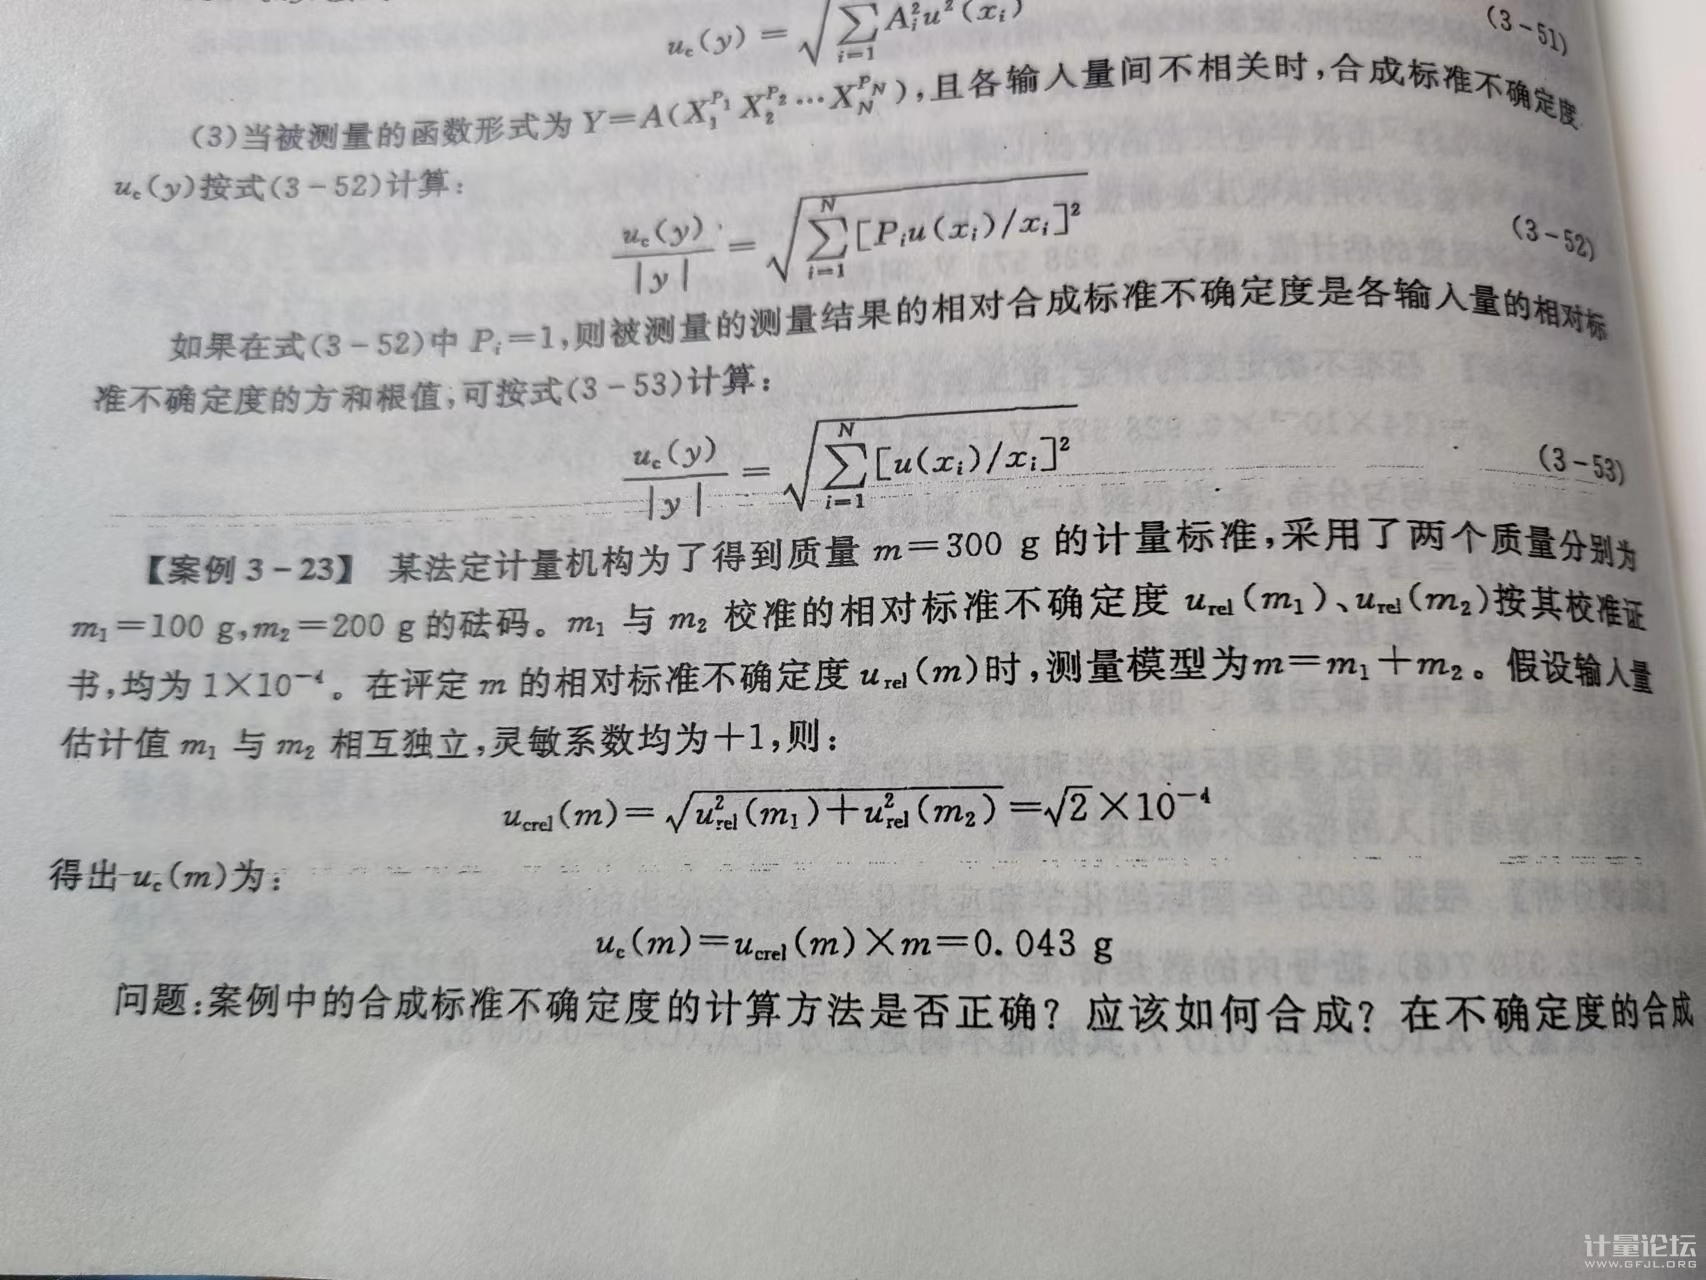 u_c(y) = √(∑_{i=1} A_i²u²(x_i)) (3-51)
(3)当被测量的函数形式为 Y=A(X_1^{P_1} X_2^{P_2} ⋯ X_N^{P_N}),且各输入量间不相关时,合成标准不确定度
u_c(y)按式(3-52)计算:
u_c(y)/|y| = √(∑_{i=1}^{N} [P_i u(x_i)/x_i]²) (3-52)
如果在式(3-52)中 P_i=1,则被测量的测量结果的相对合成标准不确定度是各输入量的相对标
准不确定度的方和根值,可按式(3-53)计算:
u_c(y)/|y| = √(∑_{i=1}^{N} [u(x_i)/x_i]²) (3-53)
【案例 3-23】 某法定计量机构为了得到质量 m=300 g 的计量标准,采用了两个质量分别为
m_1=100 g,m_2=200 g 的砝码。m_1 与 m_2 校准的相对标准不确定度 u_rel(m_1)、u_rel(m_2)按其校准证
书,均为 1×10⁻⁴。在评定 m 的相对标准不确定度 u_rel(m)时,测量模型为m=m_1+m_2。假设输入量
估计值 m_1 与 m_2 相互独立,灵敏系数均为+1,则:
u_crel(m)=√(u²_rel(m_1)+u²_rel(m_2))=√2×10⁻⁴
得出 u_c(m)为:
u_c(m)=u_crel(m)×m=0.043 g
问题:案例中的合成标准不确定度的计算方法是否正确?应该如何合成?在不确定度的合成
计量论坛
WWW.GFJL.ORG